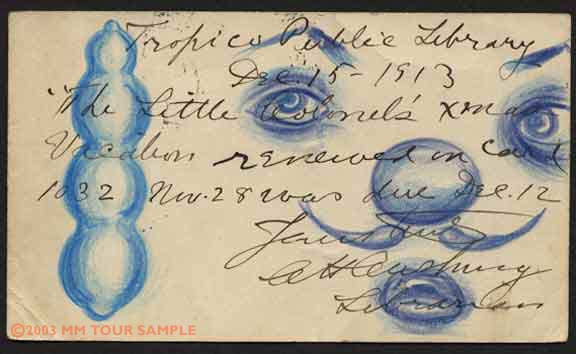 Tropico Public Library
Dec. 15 - 1913
"The Little Colonel's Xmas
Vacation renewed on card
1032 Nov. 28 was due Dec. 12
Librarian
©2003 MM TOUR SAMPLE